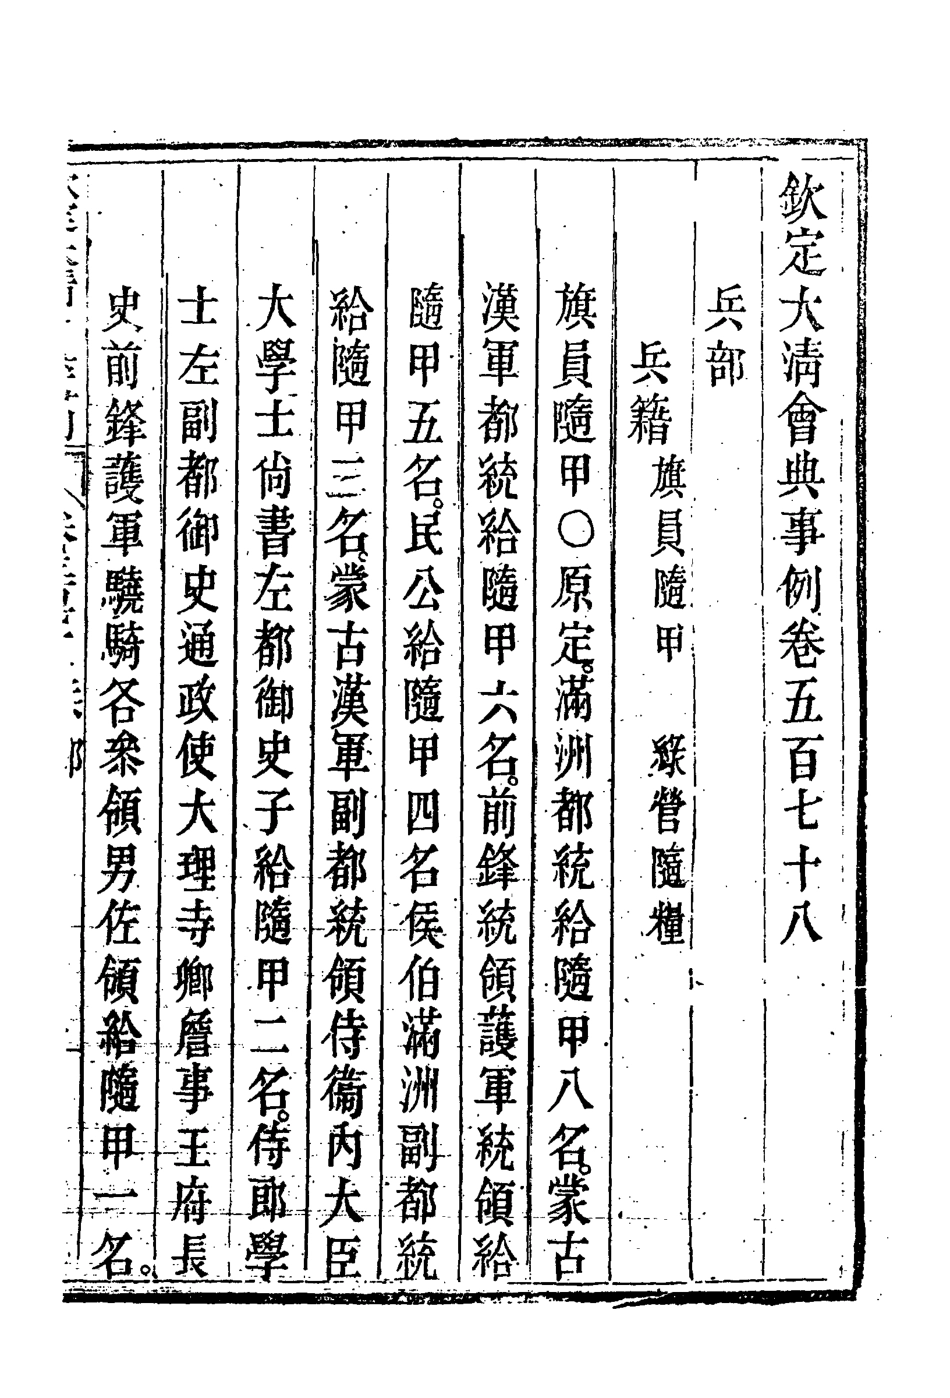 欽定大清會典事例卷五百七十八
兵部
兵籍 旗員隨甲 綠營隨糧
旗員隨甲〇原定。滿洲都統給隨甲八名。蒙古
漢軍都統給隨甲六名。前鋒統領護軍統領給
隨甲五名。民公給隨甲四名侯伯滿洲副都統
給隨甲三名。蒙古漢軍副都統領侍衞內大臣
大學士尚書左都御史子給隨甲二名。侍郎學
士左副都御史通政使大理寺卿詹事王府長
史前鋒護軍驍騎各叅領男佐領給隨甲一名。